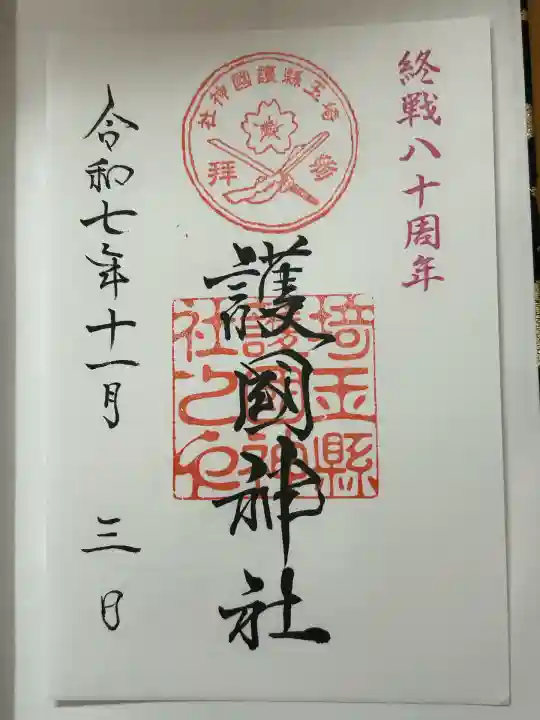 終戦八十周年
埼玉縣護國神社
参拜
護國神社
埼玉縣
護國神
社之印
令和七年十一月三日